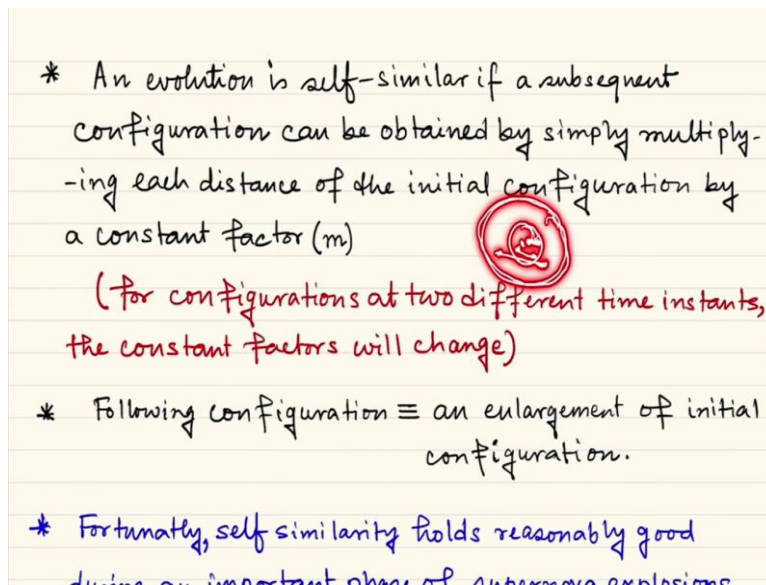 * An evolution is self-similar if a subsequent
configuration can be obtained by simply multiply-
-ing each distance of the initial configuration by
a constant factor (m)
(for configurations at two different time instants,
the constant factors will change)
* Following configuration ≡ an enlargement of initial
configuration.
* Fortunatly, self similarity holds reasonably good
during an important phase of supernova explosions